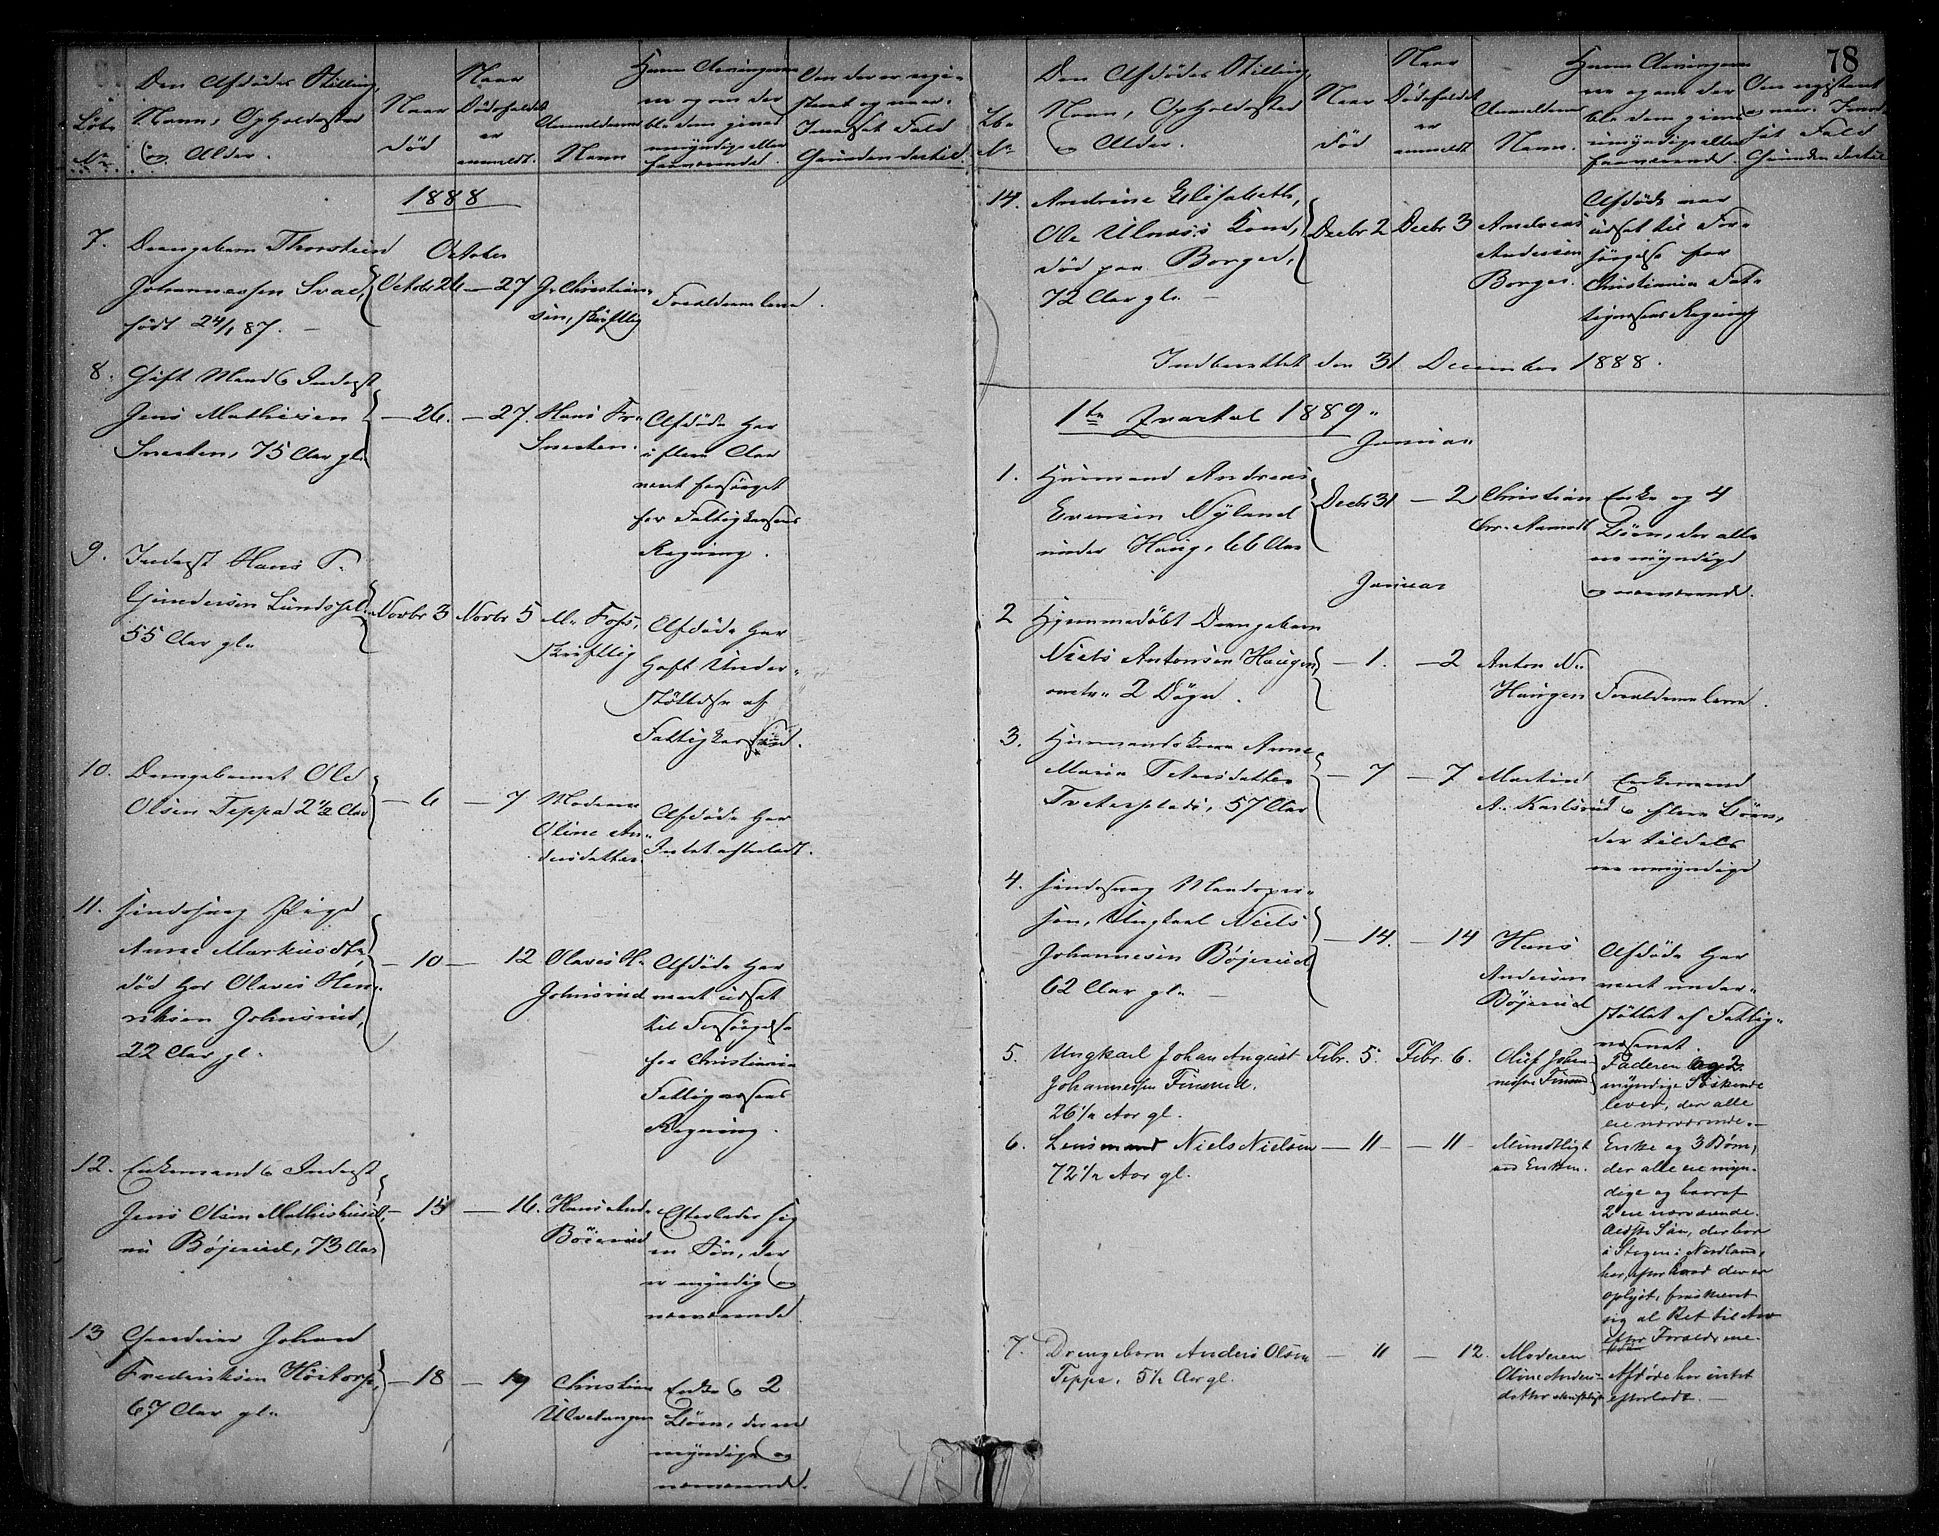 78
Løbe
No
Den Afdødes Stilling,
Navn, Opholdssted
og Alder.
Naar
død
Naar
Dødsfaldet
er
anmeldt.
Anmelderens
Navn
Hvem Arvingerne
ere og om der
blandt dem gives
umyndige eller
fraværende.
Om der er regi-
streret og naar.
Grunden dertil.
1888
7. Drengebarn Thorstein
Johannessen Svae,
født 24/1 87.
October
Octbr 26 — 27
J. Christian-
sen, skriftlig
Forældrene leve.
8. Gift Mand & Inderst
Jens Mathisen
Snesten, 75 Aar gl.
— 26. — 27.
Hans Fr.
Snesten.
Afdøde har
i flere Aar
været forsørget
for Fattigkassens
Regning.
9. Inderst Hans P.
Gundersen Lundshol
55 Aar gl.
Novbr 3 Novbr 5
M. Foss,
skriftlig
Afdøde har
haft Under-
støttelse af
Fattigkassen.
10. Drengebarnet Ole
Olsen Teppa 2 1/2 Aar
— 6 — 7
Moderen
Oline An-
dersdatter
Afdøde har
Intet efterladt.
11. sindssvag Pige
Anne Markusdtr,
død hos Olaves Hen-
riksen Johnsrud,
22 Aar gl.
— 10 — 12
Olaves H.
Johnsrud
Afdøde har
været udsat
til Forsørgelse
for Christiania
Fattigvæsens
Regning.
12. Enkemand & Inderst
Jens Olsen Mathishuset,
nu Bøjerud, 73 Aar
— 15 — 16.
Hans And.
Böierud
Efterlader sig
en Søn, der
er myndig og
nærværende.
13 Gaardeier Johan
Frederiksen Höitorp,
67 Aar gl.
— 18 — 19
Christian
Ulvetangen
Enke & 2
Børn, der ere
myndige og
nærværende.
Lb.
No
Den Afdødes Stilling,
Navn, Opholdssted
og Alder.
Naar
død
Naar
Dødsfaldet
er
anmeldt
Anmelderens
Navn.
Hvem Arvingerne
ere og om der
blandt dem gives
umyndige eller
fraværende.
Om registreret
og naar. I mod-
sat Fald
Grunden dertil
14. Andrine Elisabeth,
Ole Ulnæss Kone,
død paa Borger,
72 Aar gl. —
Decbr 2 Decbr 3
Andreas
Andersen
Borger.
Afdøde var
udsat til For-
sørgelse for
Christiania Fat-
tigvæsens Regning
Indberettet den 31 December 1888.
1ste Qvartal 1889.
Januar
1. Husmand Andreas
Evensen Nyland
under Haug, 66 Aar
Decbr 31 — 2
Christian
Chr. Aamodt
Enke og 4
Børn, der alle
ere myndige
og nærværende.
Januar
2 Hjemmedøbt Drengebarn
Niels Antonsen Haugen,
omtr. 2 Døgn.
— 1. — 2
Anton N.
Haugen
Forældrene leve.
3. Husmandskone Anne
Maria Petersdatter
Tveterplads, 57 Aar
— 7 — 7
Martin
A. Karlsrud
Enkemand
& flere Børn,
der tildels
ere umyndige
4. sindssvag Mandsper-
son, Ungkarl Niels
Johannesen Bøjerud
62 Aar gl. —
— 14. — 14
Hans
Andersen
Bøjerud
Afdøde har
været under-
støttet af Fattig-
væsenet.
5. Ungkarl Johan August
Johannessen Finsrud.
26 1/2 Aar gl.
Febr. 5. Febr. 6.
Oluf Johan-
nessen Finsrud
Faderen og 2
myndige Søskende
lever, der alle
ere nærværende. —
6. Lensmand Niels Nielsen
72 1/2 Aar gl.
— 11 — 11
Mundtligt
ved Enken.
Enke og 3 Børn,
der alle ere myn-
dige og hvoraf
2 ere nærværende.
Ældste Søn, der bor
i Stegen i Nordland,
har, efter hvad der er
oplyst, fraskrevet
sig al Ret til Arv
efter Forældrene.
7. Drengebarn Anders Olsen
Teppa, 5 1/2 Aar gl.
— 11 — 12.
Moderen
Oline Anders-
datter skriftligt
Afdøde har intet
efterladt. —